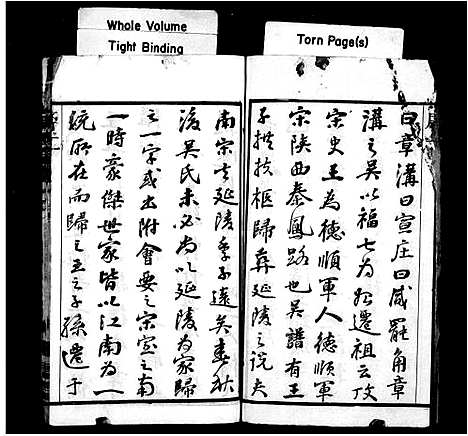 Whole Volume
Tight Binding
Torn Page(s)
曰章溝曰宣庄曰咸罷角章
溝之吴以福七為始遷祖云攷
宋史王為德順軍人德順軍
宋陝西秦鳳路也吴譜有王
子拱扶柩歸葬延陵之說夫
南宋去延陵季子遠矣春秋
後吴氏未必尚以延陵為家歸
之一字或出附會要之宋室之南
一時豪傑世家皆以江南為一
統所在而歸之王之子孫遷于